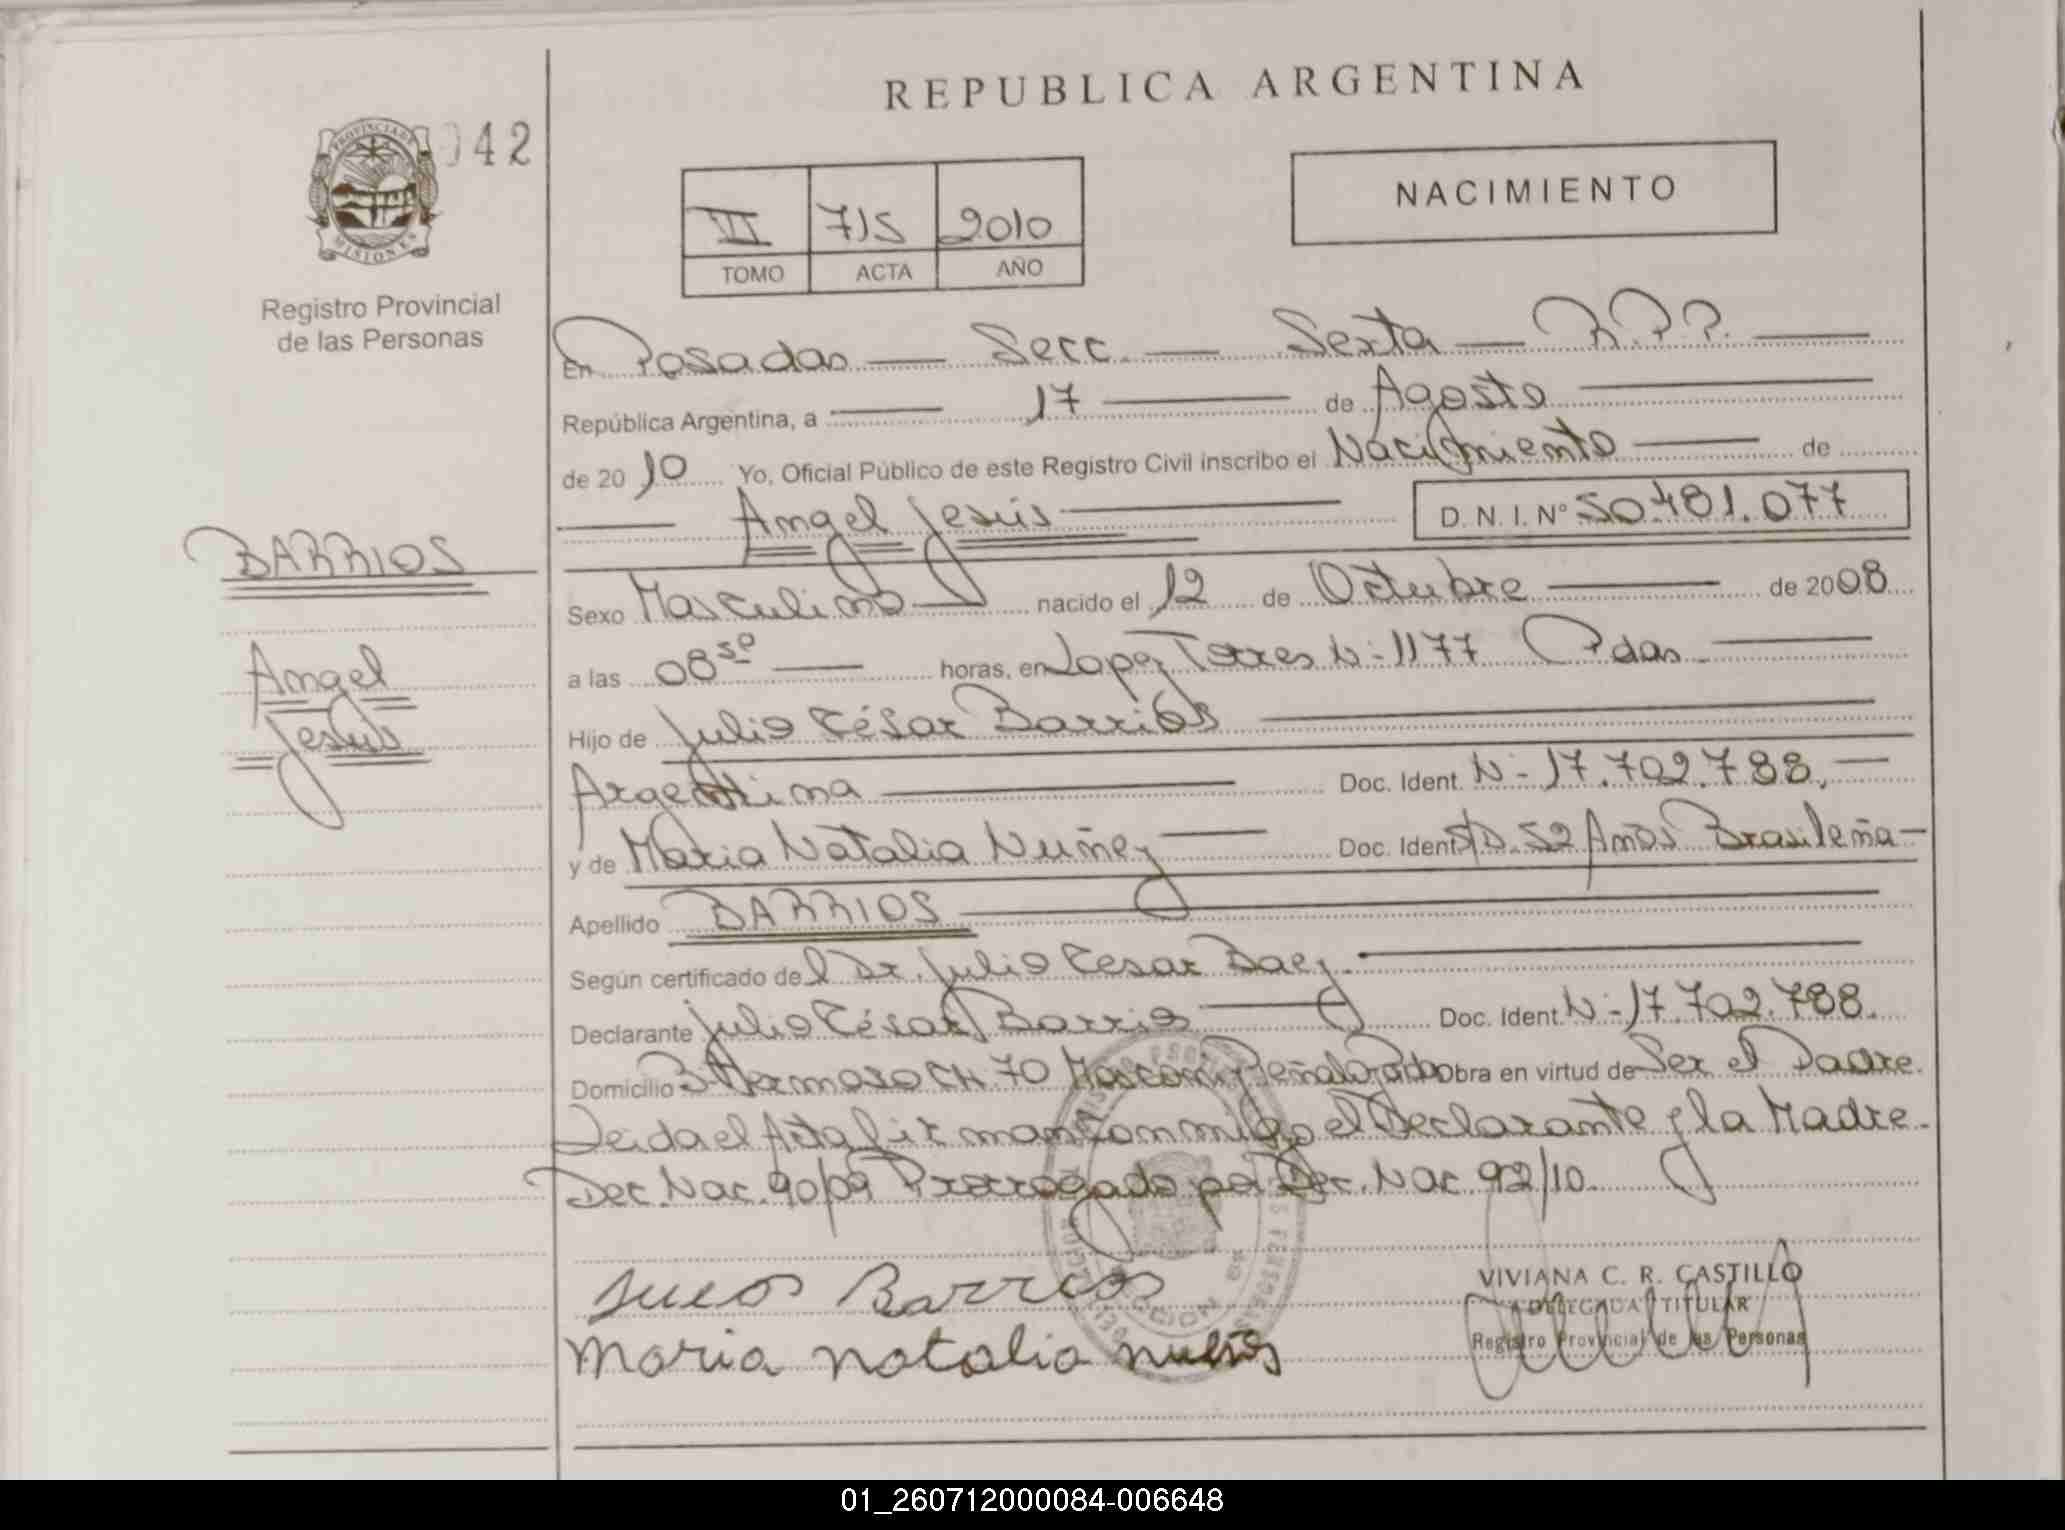 REPUBLICA ARGENTINA
PROVINCIA DE MISIONES
042
NACIMIENTO
III 715 2010
TOMO ACTA AÑO
Registro Provincial
de las Personas
En Posadas — Secc. — Sexta — R.P.P. —
República Argentina, a — 17 — de Agosto —
de 2010 Yo, Oficial Público de este Registro Civil inscribo el Nacimiento — de
— Angel Jesús — D. N. I. Nº 50481.077
BARRIOS
Angel
Jesús
Sexo Masculino — nacido el 12 de Octubre — de 2008
a las 08 50 — horas, en Lopez Torres N- 1177 Pdas —
Hijo de Julio César Barrios —
Argentina — Doc. Ident. N- 17.702.788. —
y de Maria Natalia Nuñez — Doc. Ident. S/D. 52 Años Brasileña —
Apellido BARRIOS —
Según certificado del Dr. Julio Cesar Baez. —
Declarante Julio César Barrios — Doc. Ident. N- 17.702.788.
Domicilio B Hermoso CH 70 Obra en virtud de Ser el Padre.
Leida el Acta firman conmigo el Declarante y la Madre.
Dec. Nac. 90/09 Prorrogado por Dec. Nac. 92/10.
Barrios
Maria Natalia
VIVIANA C. R. CASTILLO
DELEGADA TITULAR
Registro Provincial de las Personas
01_260712000084-006648